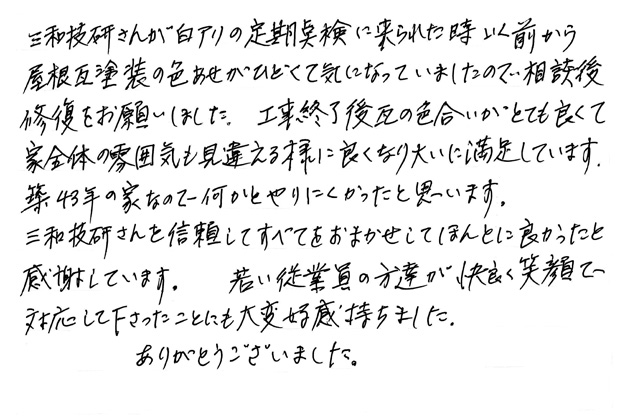 三和技研さんが白アリの定期点検に来られた時いく前から
屋根瓦塗装の色あせがひどくて気になっていましたので相談後
修復をお願いしました。工事終了後瓦の色合いがとても良くて
家全体の雰囲気も見違える様に良くなり大いに満足しています。
築43年の家なので何かとやりにくかったと思います。
三和技研さんを信頼してすべてをおまかせしてほんとに良かったと
感謝しています。 若い従業員の方達が快良く笑顔で
対応して下さったことにも大変好感持ちました。
ありがとうございました。